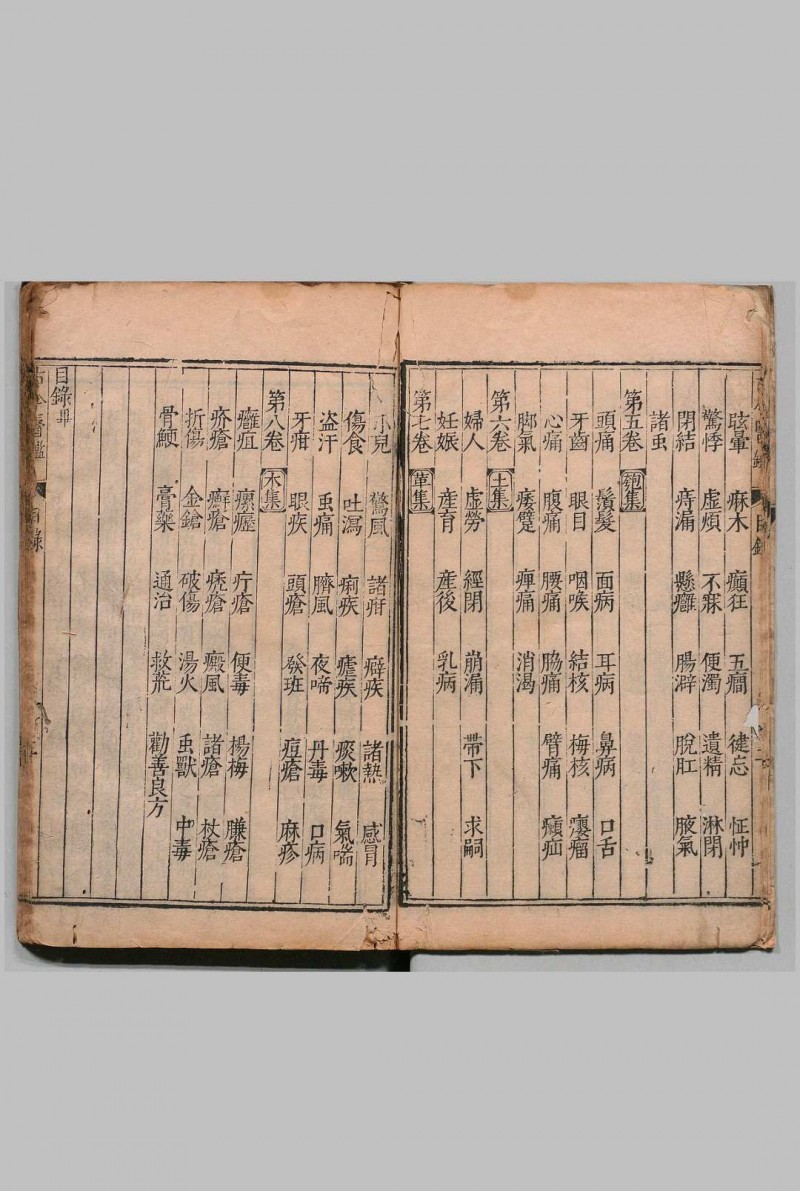 眩暈 麻木 癲狂 五癇 健忘 怔忡
驚悸 虛煩 不寐 便濁 遺精 淋閉
閉結 痔漏 懸癰 腸澼 脫肛 腋氣
諸虫
第五卷 匏集
頭痛 鬚髮 面病 耳病 鼻病 口舌
牙齒 眼目 咽喉 結核 梅核 癭瘤
心痛 腹痛 腰痛 脇痛 臂痛 㿗疝
脚氣 痿躄 痺痛 消渴
第六卷 土集
婦人 虛勞 經閉 崩漏 帶下 求嗣
妊娠 產育 產後 乳病
第七卷 革集
小兒 驚風 諸疳 癖疾 諸熱 感冒
傷食 吐瀉 痢疾 瘧疾 痰嗽 氣喘
盜汗 虫痛 臍風 夜啼 丹毒 口病
牙疳 眼疾 頭瘡 發班 痘瘡 麻疹
第八卷 木集
癰疽 瘰癧 疔瘡 便毒 楊梅 臁瘡
疥瘡 癬瘡 禿瘡 癜風 諸瘡 杖瘡
折傷 金鎗 破傷 湯火 虫獸 中毒
骨鯁 膏藥 通治 救荒 勸善良方
目錄畢
古今醫鑑 目錄